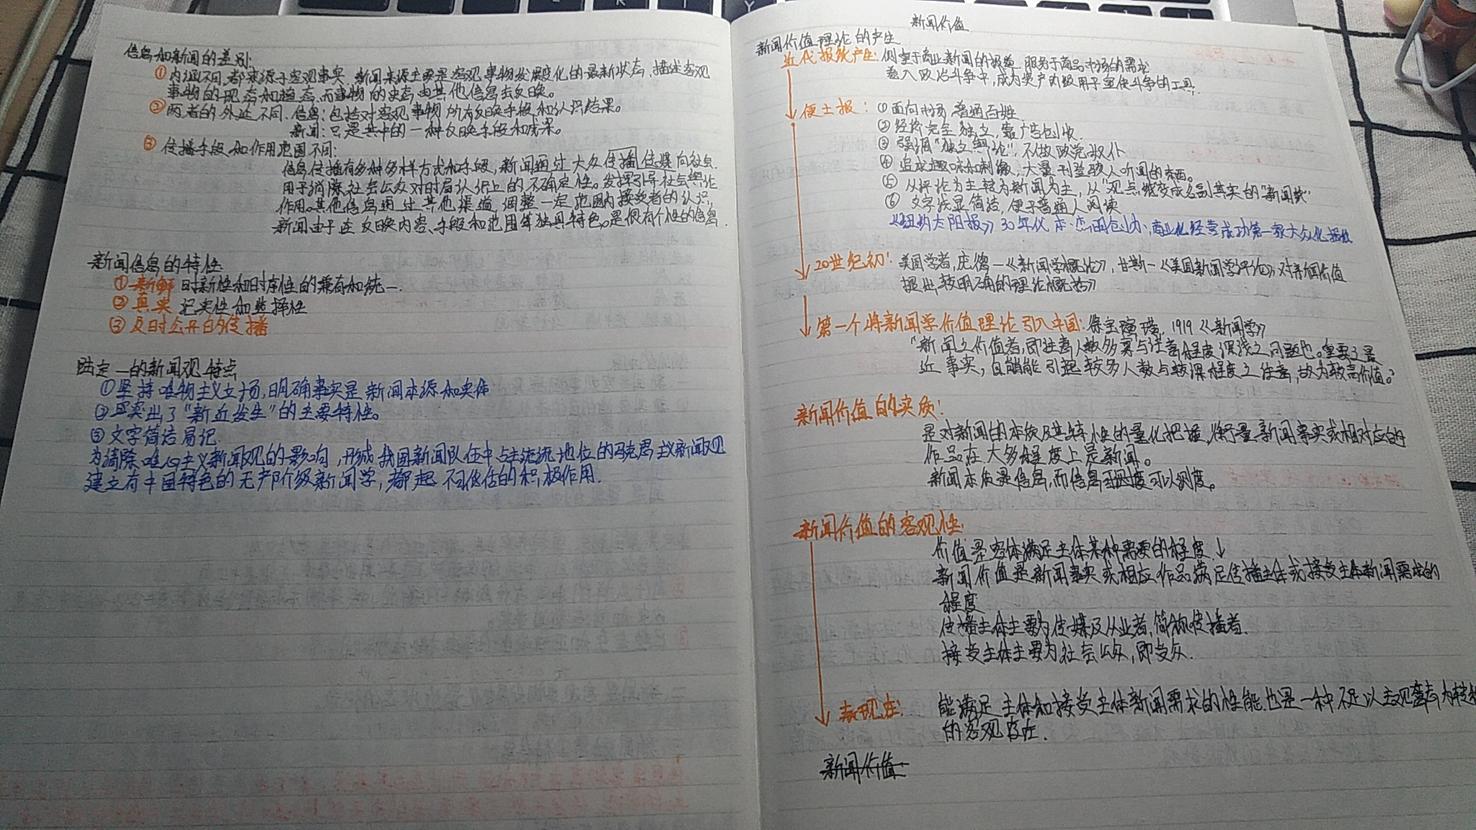 信息和新闻的差别:
①内涵不同.都来源于客观事实,新闻来源主要是客观事物发展变化的最新状态,描述客观
事物的现态和趋态,而事物的史态由其他信息去反映。
②两者的外延不同.信息:包括对客观事物所有反映手段和认识结果。
新闻:只是其中的一种反映手段和成果。
③传播手段和作用范围不同:
信息传播有多种多样方式和手段,新闻通过大众传播传媒向社会
用于消除社会公众对时局认识上的不确定性。发挥引导社会舆论
作用.其他信息通过其他渠道,调整一定范围内接受者的认识,
新闻由于在反映内容、手段和范围等独具特色,是很有个性的信息.
新闻信息的特性
①新鲜 时新性和时宜性的兼有和统一.
②真实 记实性和选择性
③及时公开的传播
陆定一的新闻观特点
①坚持唯物主义立场,明确事实是新闻本源和实体
②突出了“新近发生”的主要特性。
③文字简洁易记.
为清除唯心主义新闻观的影响,形成我国新闻队伍中占主流地位的马克思主义新闻观
建立有中国特色的无产阶级新闻学,都起不可低估的积极作用.
新闻价值
新闻价值理论的产生
近代报纸产生: 侧重于商业新闻的报道 服务于商品市场的需求
卷入政治斗争中,成为资产阶级用于宣传斗争的工具.
便士报: ①面向市场 普通百姓
②经济完全独立,靠广告创收.
③强调“独立舆论”,不做政党奴仆
④追求趣味和刺激,大量刊登骇人听闻的东西。
⑤从评论为主转为新闻为主,从“观点纸变成名副其实的“新闻纸”
⑥文字浅显简洁,便于普通人阅读
《纽约太阳报》30年代 本·戴创办,商业化经营成功第一家大众化报纸
20世纪初: 美国学者,庞德-《新闻学概论》,甘斯-《美国新闻学评论》对新闻价值
提出较明确的理论概括》
第一个将新闻学价值理论引入中国: 徐宝璜, 1919《新闻学》
“新闻之价值者,即注意人数多寡与注意程度深浅之问题也。重要之最
近事实,自能引起较多人数与较深程度之注意,故为较高价值。”
新闻价值的实质:
是对新闻的本质及其特性的量化把握,衡量新闻事实或相对应的
作品在大多程度上是新闻。
新闻本质是信息,而信息可以测度。
新闻价值的客观性:
价值是客体满足主体某种需要的程度↓
新闻价值是新闻事实或相应作品满足传播主体或接受主体新闻需求的
程度
传播主体主要为传媒及从业者,简称传播者.
接受主体主要为社会公众,即受众.
表现在: 能满足主体和接受主体新闻需求的性能.也是一种不足以主观意志为转移
的客观存在.
新闻价值